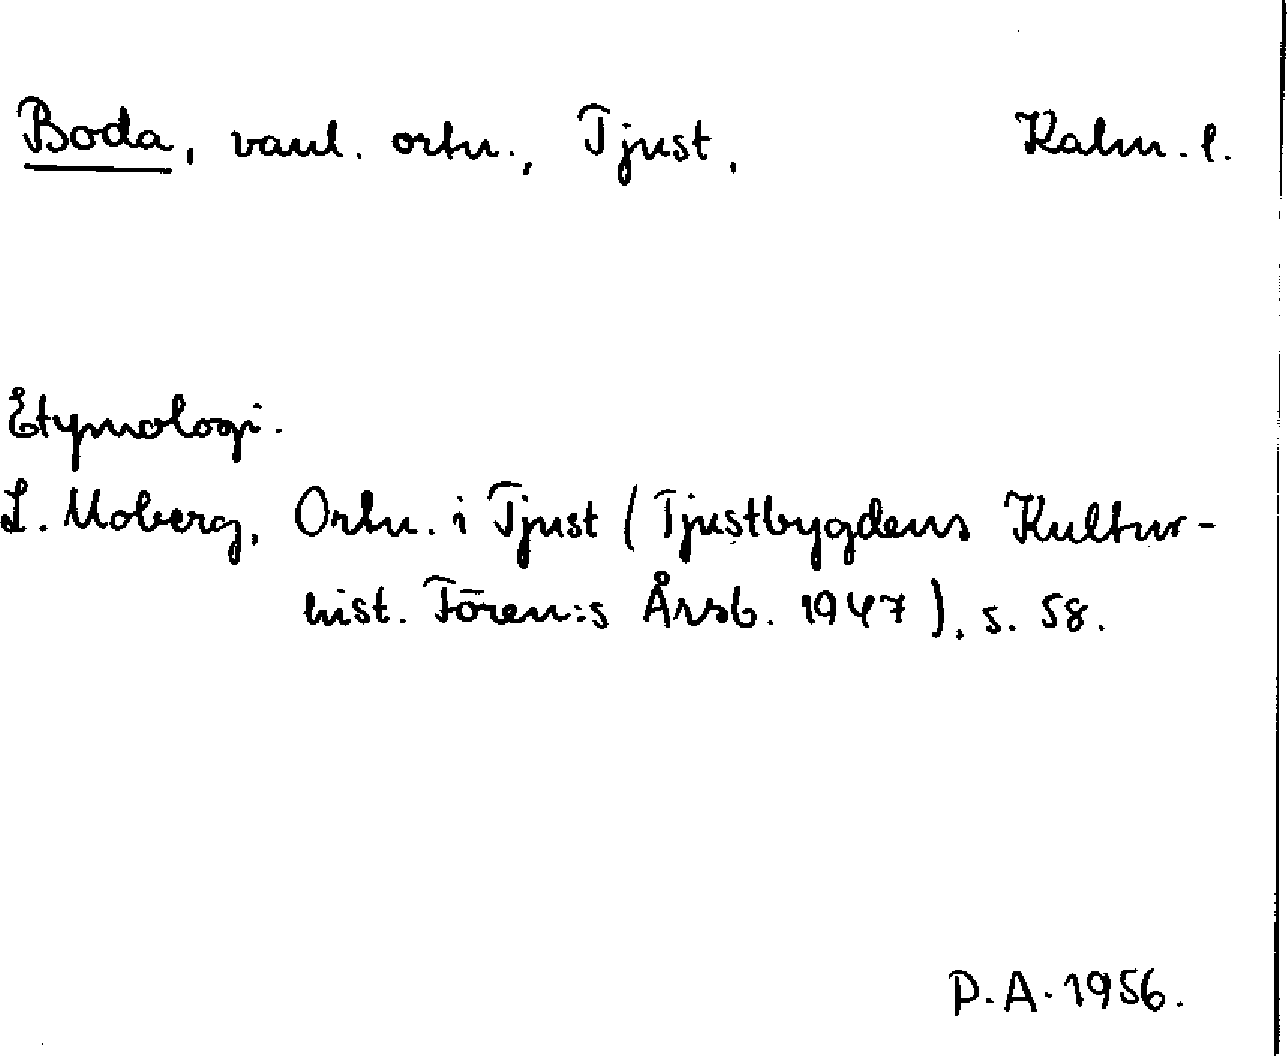 Boda, vanl. ortn., Tjust, Kalm. l.
Etymologi.
L. Moberg, Ortn. i Tjust (Tjustbygdens Kultur-
hist. Fören:s Årsb. 1947), s. 58.
P. A. 1956.